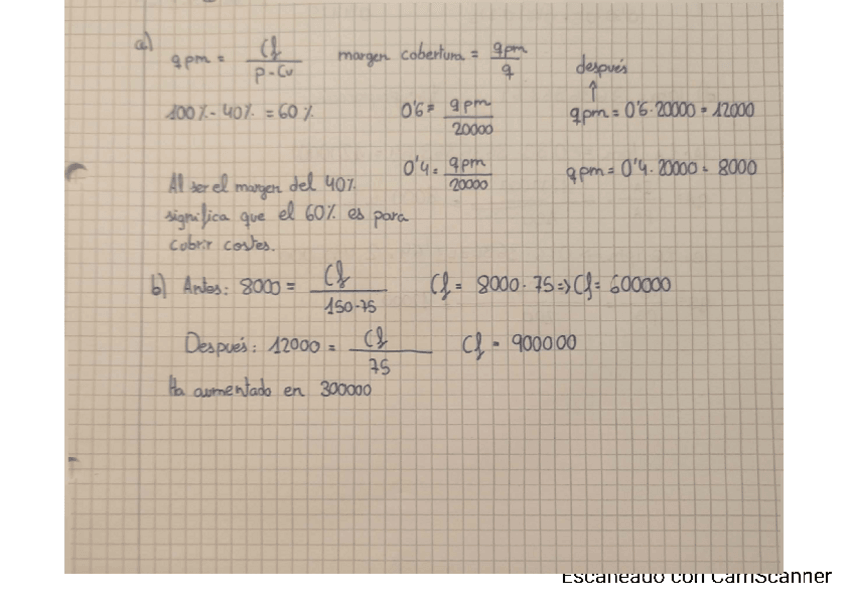 a) qpm = Cf / p - Cv    margen cobertura = qpm / q
después
↑
100% - 40% = 60%    0'6 = qpm / 20000    qpm = 0'6 · 20000 = 12000
0'4 = qpm / 20000    qpm = 0'4 · 20000 = 8000
Al ser el margen del 40%
significa que el 60% es para
cubrir costes.
b) Antes: 8000 = Cf / 150-75    Cf = 8000 · 75 => Cf = 600000
Después: 12000 = Cf / 75    Cf = 900000
Ha aumentado en 300000
Escaneado con CamScanner